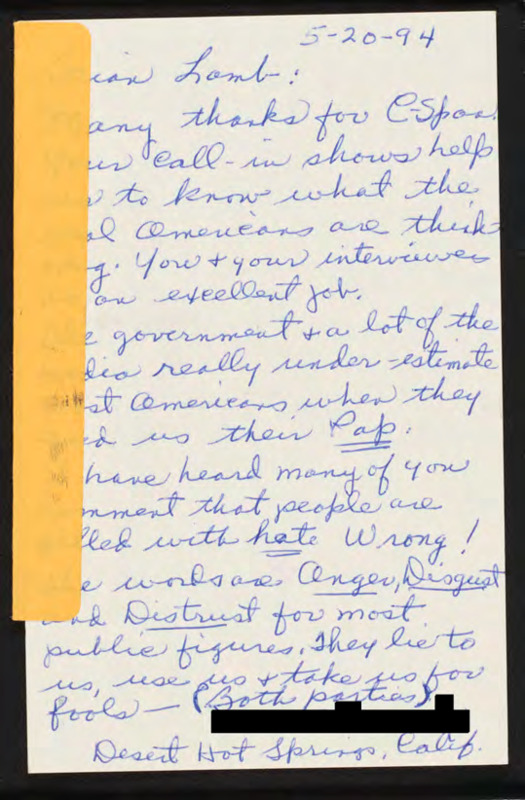 5-20-94
ian Lamb:
any thanks for C-Span.
ur call-in shows help
to know what the
al Americans are think-
g. You & your interviewers
an excellent job.
e government & a lot of the
dia really under-estimate
st Americans when they
ed us their Pap.
have heard many of you
mment that people are
lled with hate Wrong!
e words are Anger, Disgust
and Distrust for most
public figures. They lie to
us, use us & take us for
fools — (Both parties)
Desert Hot Springs, Calif.